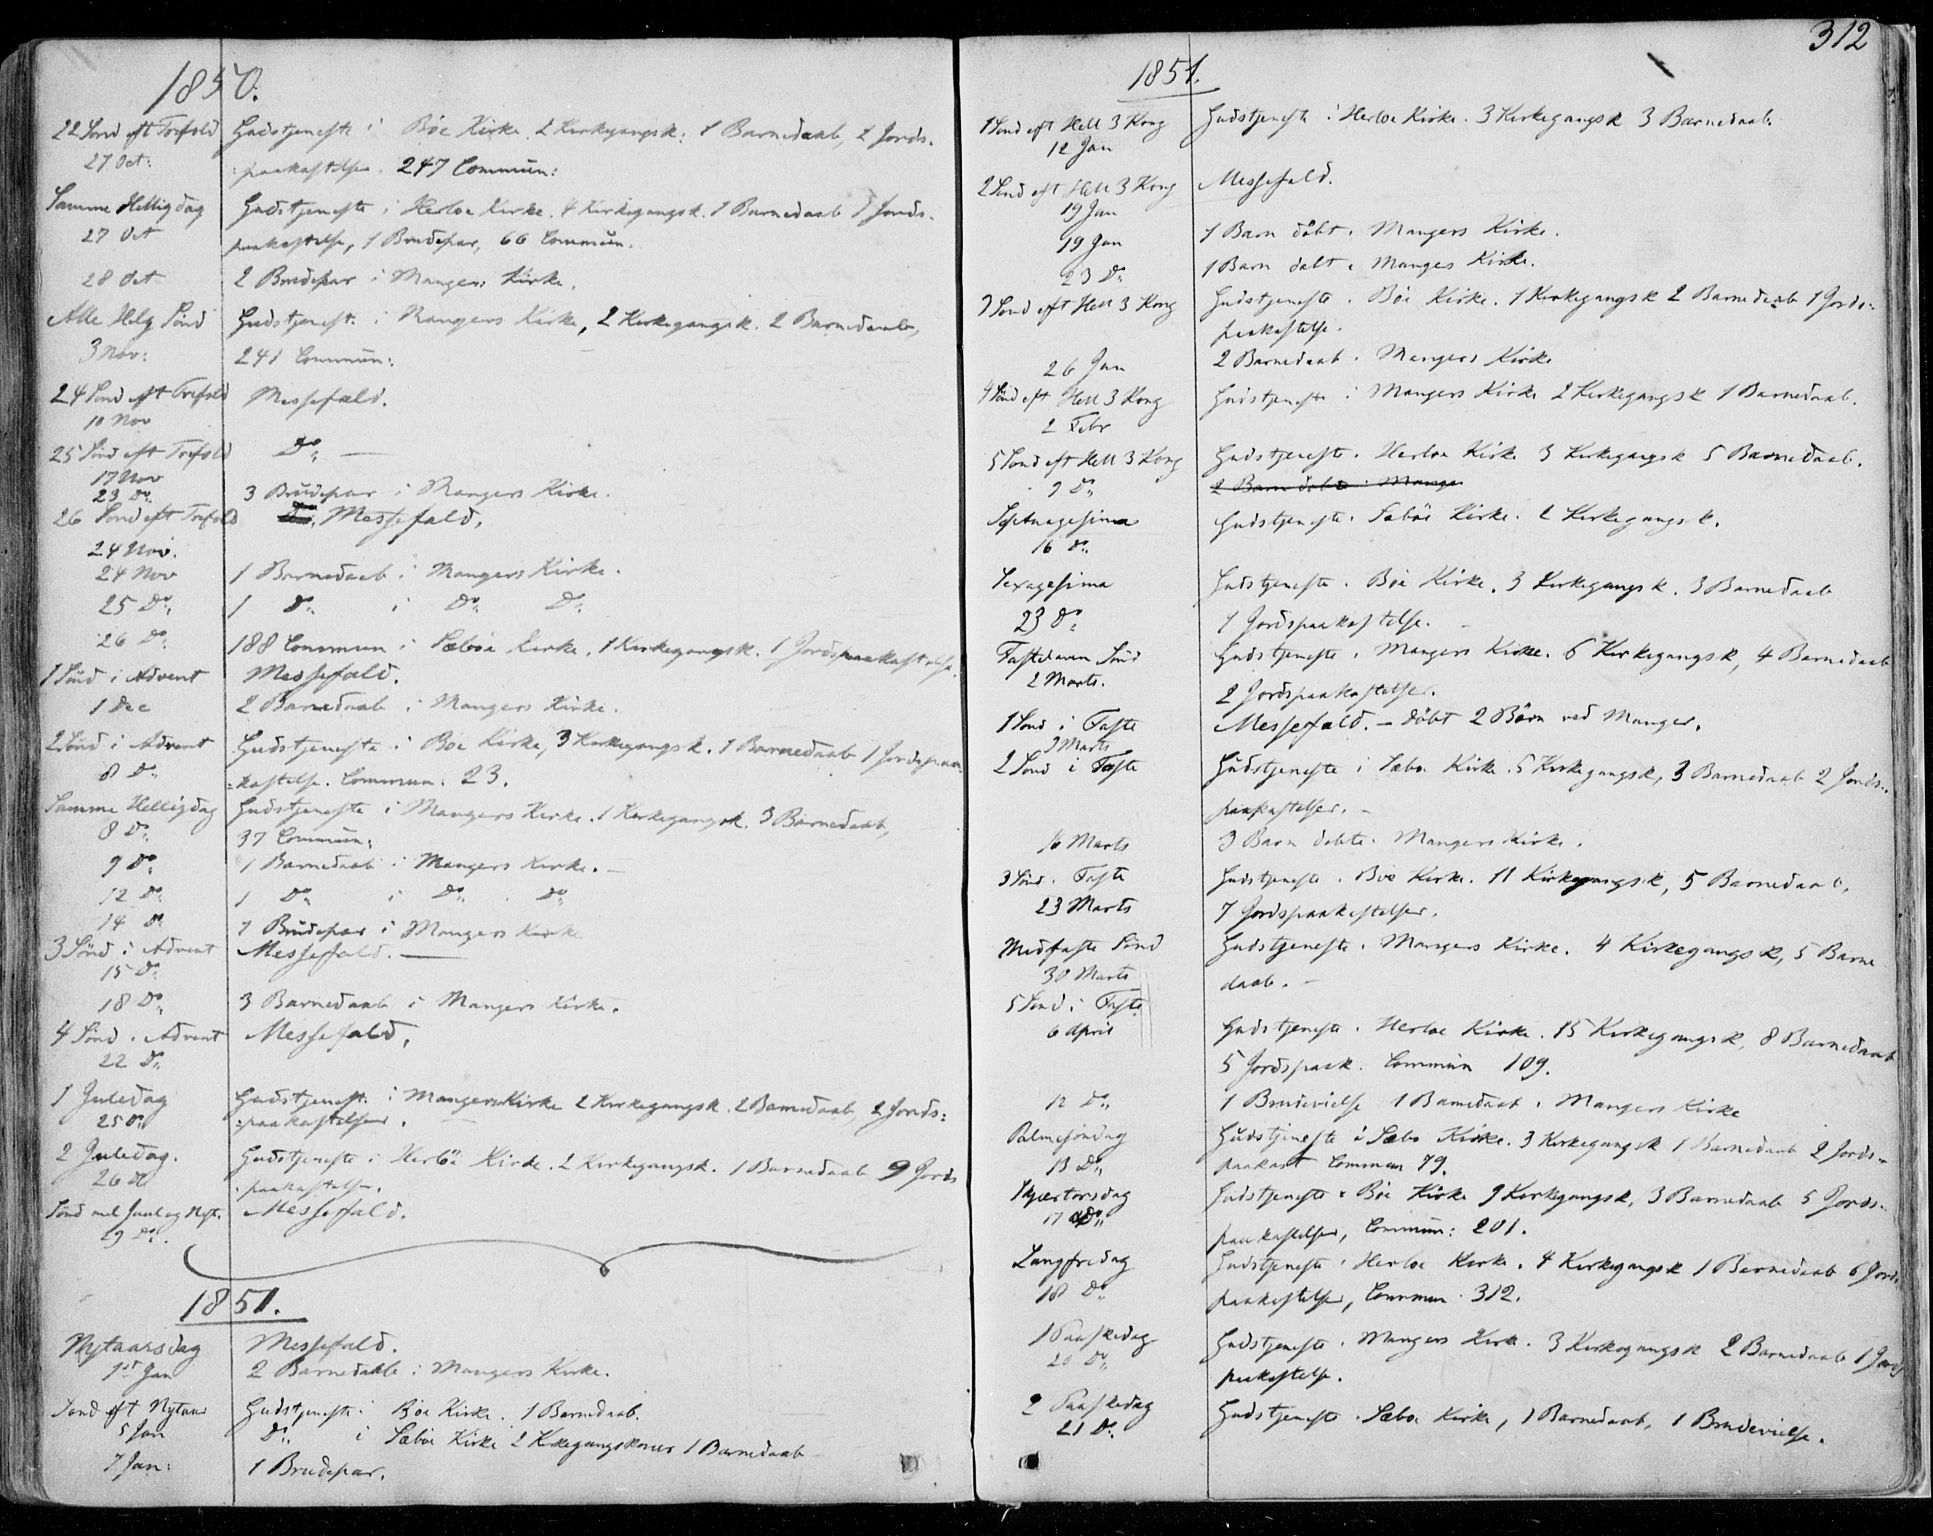 1850.
22 Sönd eft Trefold Gudstjeneste i Böe Kirke. 2 Kirkegangsk: 1 Barnedaab, 2 Jords-
27 Oct: :paakastelser. 247 Commun:
Samme Hellig dag Gudstjeneste i Herloe Kirke. 4 Kirkegangsk. 1 Barnedaab 1 Jords-
27 Oct paakastelse, 1 Brudepar, 66 Commun.
28 Oct 2 Brudepar i Mangers Kirke.
Alle Helg Sönd Gudstjenest. i Mangers Kirke, 2 Kirkegangsk. 2 Barnedaab,
3 Nov: 241 Commun:
24 Sönd eft Trefold Messefald.
10 Nov
25 Sönd eft Trefold Do. —
17 Nov
23 Do. 3 Brudepar i Mangers Kirke.
26 Sönd eft Trefold Messefald.
24 Nov.
24 Nov 1 Barnedaab i Mangers Kirke.
25 Do. 1 Do. i Do. Do.
26 Do. 188 Commun i Sæböe Kirke, 1 Kirkegangsk. 1 Jordspaakastelse.
1 Sönd i Advent Messefald.
1 Dec 2 Barnedaab i Mangers Kirke.
2 Sönd i Advent Gudstjeneste i Böe Kirke, 3 Kirkegangsk. 1 Barnedaab 1 Jordspaa
8 Do. =kastelse. Commun. 23.
Samme Helligdag Gudstjeneste i Mangers Kirke. 1 Kirkegangsk. 3 Barnedaab,
8 Do. 37 Commun:
9 Do. 1 Barnedaab i Mangers Kirke. —
12 Do. 1 Do. i Do. Do.
14 Do 1 Brudepar i Mangers Kirke
3 Sönd i Advent Messefald. —
15 Do.
18 Do. 3 Barnedaab i Mangers Kirke.
4 Sönd i Advent Messefald.
22 Do.
1 Juledag Gudstjenest. i Mangers Kirke 2 Kirkegangsk. 2 Barnedaab, 2 Jords=
25 Do :paakastelser.
2 Juledag. Gudstjeneste i Herlöe Kirke. 2 Kirkegangsk. 1 Barnedaab 9 Jords
26 Do :paakastelser.
Sönd mel Juul og Nyt. Messefald.
29 Do.
1851.
Nytaarsdag Messefald.
1st Jan 2 Barnedaab i Mangers Kirke.
Sönd eft Nytaar Gudstjeneste i Böe Kirke. 1 Barnedaab.
5 Jan Do. i Sæböe Kirke 2 Kirkegangskoner 1 Barnedaab
7 Jan: 1 Brudepar.
312
1851.
1 Sönd eft Hell 3 Kong Gudstjeneste i Herloe Kirke. 3 Kirkegangsk 3 Barnedaab.
12 Jan
2 Sönd eft Hell 3 Kong Messefald.
19 Jan
19 Jan 1 Barn döbt i Mangers Kirke.
23 Do. 1 Barn döbt i Mangers Kirke.
3 Sönd eft Hell 3 Kong Gudstjeneste i Böe Kirke. 1 Kirkegangsk 2 Barnedaab 1 Jords-
paakastelse.
26 Jan 2 Barnedaab i Mangers Kirke
4 Sönd eft Hell 3 Kong Gudstjeneste i Mangers Kirke 2 Kirkegangsk 1 Barnedaab.
2 Febr
5 Sönd eft Hell 3 Kong Gudstjeneste i Herloe Kirke 3 Kirkegangsk 5 Barnedaab.
9 Do. 2 Barn döbt i Mange
Septuagesima Gudstjeneste i Sæböe Kirke. 2 Kirkegangsk.
16 Do.
Sexagesima Gudstjeneste i Böe Kirke. 3 Kirkegangsk. 3 Barnedaab
23 Do. 1 Jordspaakastelse.
Fastelavn Sönd Gudstjeneste i Mangers Kirke. 6 Kirkegangsk, 4 Barnedaab
2 Marts. 2 Jordspaakastelser.
1 Sönd i Faste Messefald. – döbt 2 Börn ved Manger.
9 Marts
2 Sönd i Faste Gudstjeneste i Sæbø Kirke. 5 Kirkegangsk, 3 Barnedaab 2 Jords-
paakastelser. –
16 Marts 3 Barn döbte i Mangers Kirke.
3 Sönd i Faste Gudstjeneste i Böe Kirke. 11 Kirkegangsk, 5 Barnedaab,
23 Marts 7 Jordspaakastelser.
Midfaste Sönd Gudstjeneste i Mangers Kirke. 4 Kirkegangsk, 5 Barne
30 Marts daab. –
5 Sönd i Faste
6 April Gudstjeneste i Herloe Kirke. 15 Kirkegangsk, 8 Barnedaab
5 Jordspaak. Commun 109.
12 Do. 1 Brudevielse 1 Barnedaab i Mangers Kirke
Palmesöndag Gudstjeneste i Sæbø Kirke. 3 Kirkegangsk 1 Barnedaab 2 Jords-
13 Do. paakast Commun 79.
Skjertorsdag Gudstjeneste i Böe Kirke 9 Kirkegangsk, 3 Barnedaab 5 Jords-
17 Do. paakastelser, Commun: 201.
Langfredag Gudstjeneste i Herloe Kirke. 4 Kirkegangsk 1 Barnedaab 6 Jords
18 Do. paakastelser, Commun. 312.
1 Paaskedag Gudstjeneste i Mangers Kirke. 3 Kirkegangsk 2 Barnedaab 1 Jords
20 Do. paakastelse.
2 Paaskedag Gudstjeneste i Sæbøe Kirke, 1 Barnedaab, 1 Brudevielse.
21 Do.